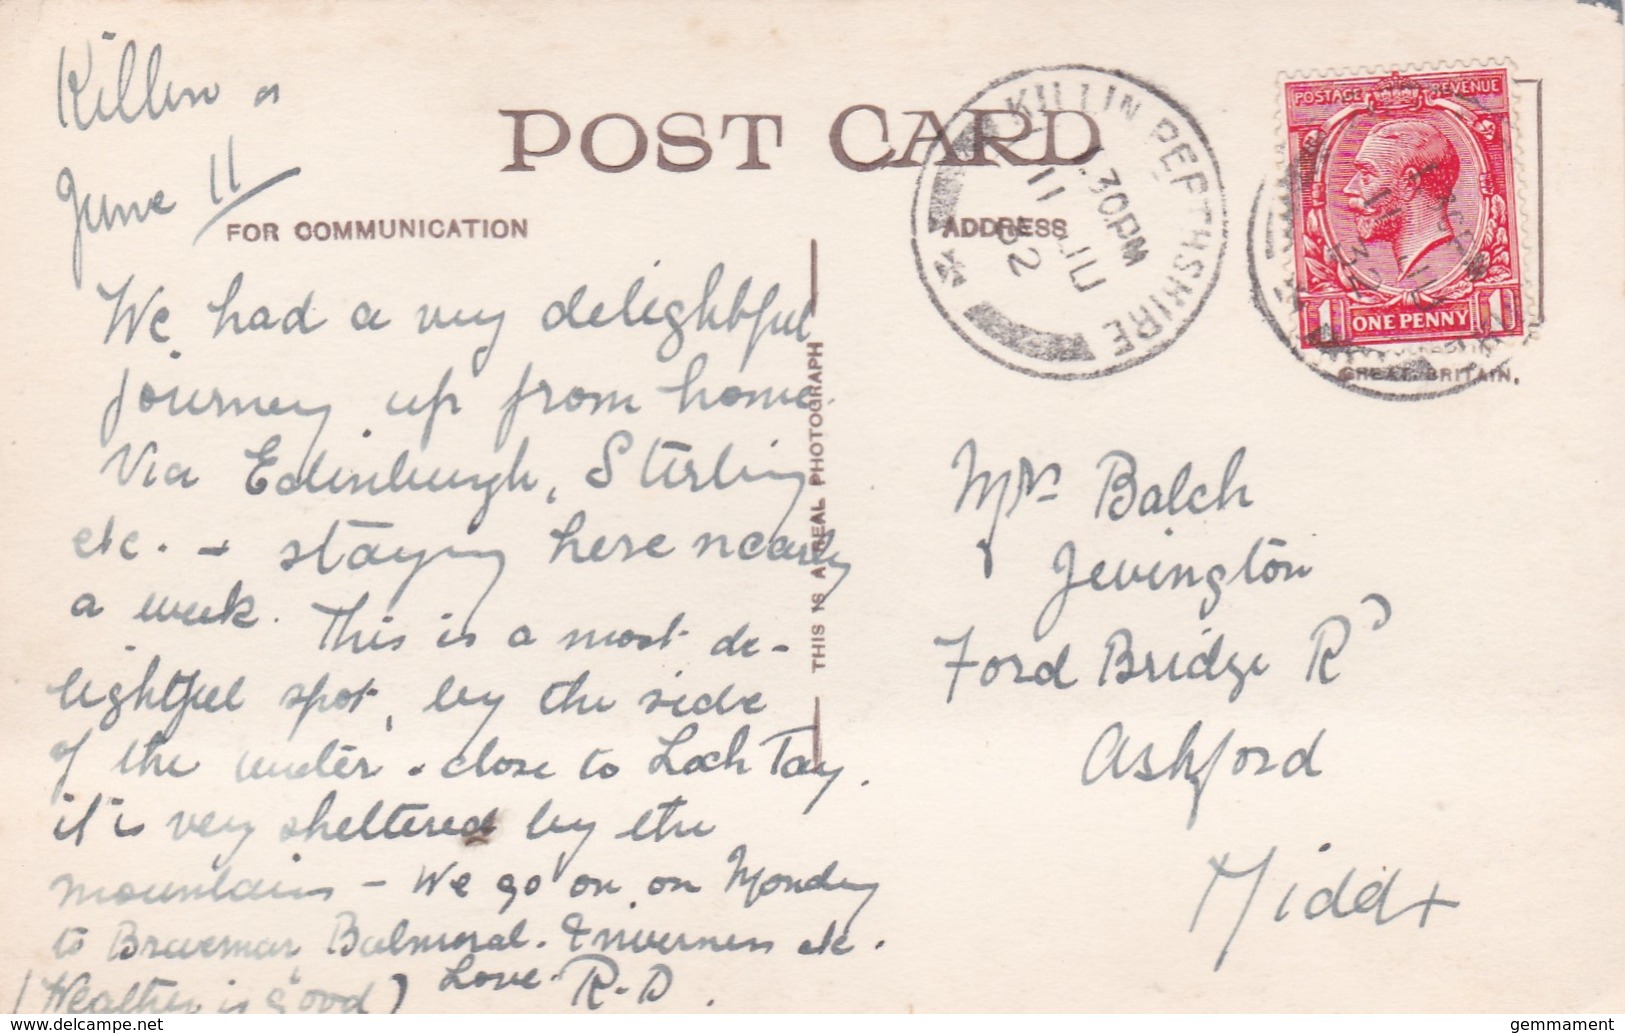 Killin
June 11
POST CARD
FOR COMMUNICATION
ADDRESS
We had a very delightful
journey up from home
via Edinburgh, Stirling
etc. + staying here nearly
a week. This is a most de-
lightful spot, by the side
of the water - close to Loch Tay.
it is very sheltered by the
mountains - We go on on Monday
to Braemar Balmoral. Inverness etc.
(Weather is good) Love R.D.
THIS IS A REAL PHOTOGRAPH
KILLIN PERTHSHIRE
.30PM
11 JU
32
POSTAGE REVENUE
1 ONE PENNY 1
GREAT BRITAIN.
Mrs Balch
Jevington
Ford Bridge Rd
Ashford
Middx
gemmament
www.delcampe.net